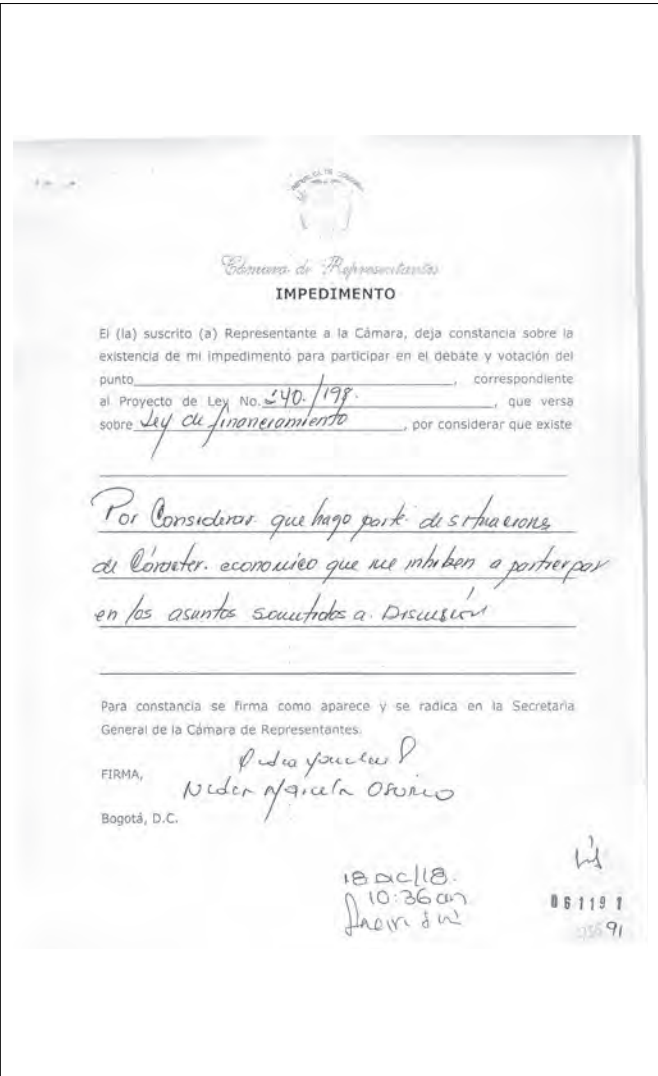 REPUBLICA DE COLOMBIA
Cámara de Representantes
IMPEDIMENTO
El (la) suscrito (a) Representante a la Cámara, deja constancia sobre la
existencia de mi impedimento para participar en el debate y votación del
punto, correspondiente
al Proyecto de Ley No. 240./198., que versa
sobre Ley de financiamiento, por considerar que existe
Por Considerar que hago parte de situaciones
de Carácter. economico que me inhiben a participar
en los asuntos sometidos a. Discusión
Para constancia se firma como aparece y se radica en la Secretaria
General de la Cámara de Representantes.
FIRMA,
Osorio
Bogotá, D.C.
18 DIC/18.
10:36 am
061191
91